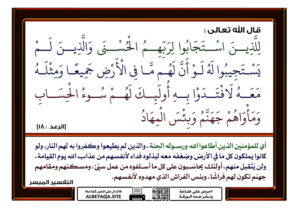 قال الله تعالى :
لِلَّذِينَ اسْتَجَابُوا لِرَبِّهِمُ الْحُسْنَى وَالَّذِينَ لَمْ
يَسْتَجِيبُوا لَهُ لَوْ أَنَّ لَهُم مَّا فِي الْأَرْضِ جَمِيعًا وَمِثْلَهُ
مَعَهُ لَافْتَدَوْا بِهِ أُولَئِكَ لَهُمْ سُوءُ الْحِسَابِ
وَمَأْوَاهُمْ جَهَنَّمُ وَبِئْسَ الْمِهَادُ
[الرعد : ١٨]
أي للمؤمنين الذين أطاعوا الله ورسوله الجنة، والذين لم يطيعوا وكفروا به لهم النار، ولو
كانوا يملكون كل ما في الأرض وضعفه معه لبذلوه فداء لأنفسهم من عذاب الله يوم القيامة،
ولن يُتقبل منهم، أولئك يحاسبون على كل ما أسلفوه من عمل سيئ، ومسكنهم ومقامهم
جهنم تكون لهم فراشًا، وبئس الفراش الذي مهدوه لأنفسهم.
التفسير الميسر
احرص على طباعة
ونشر هذه البطاقة
ALBETAQA.SITE